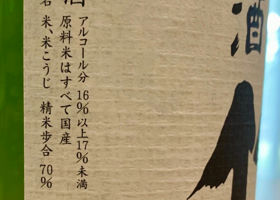 酒
酒
アルコール分 16%以上17%未満
原料米はすべて国産
米、米こうじ 精米歩合 70%